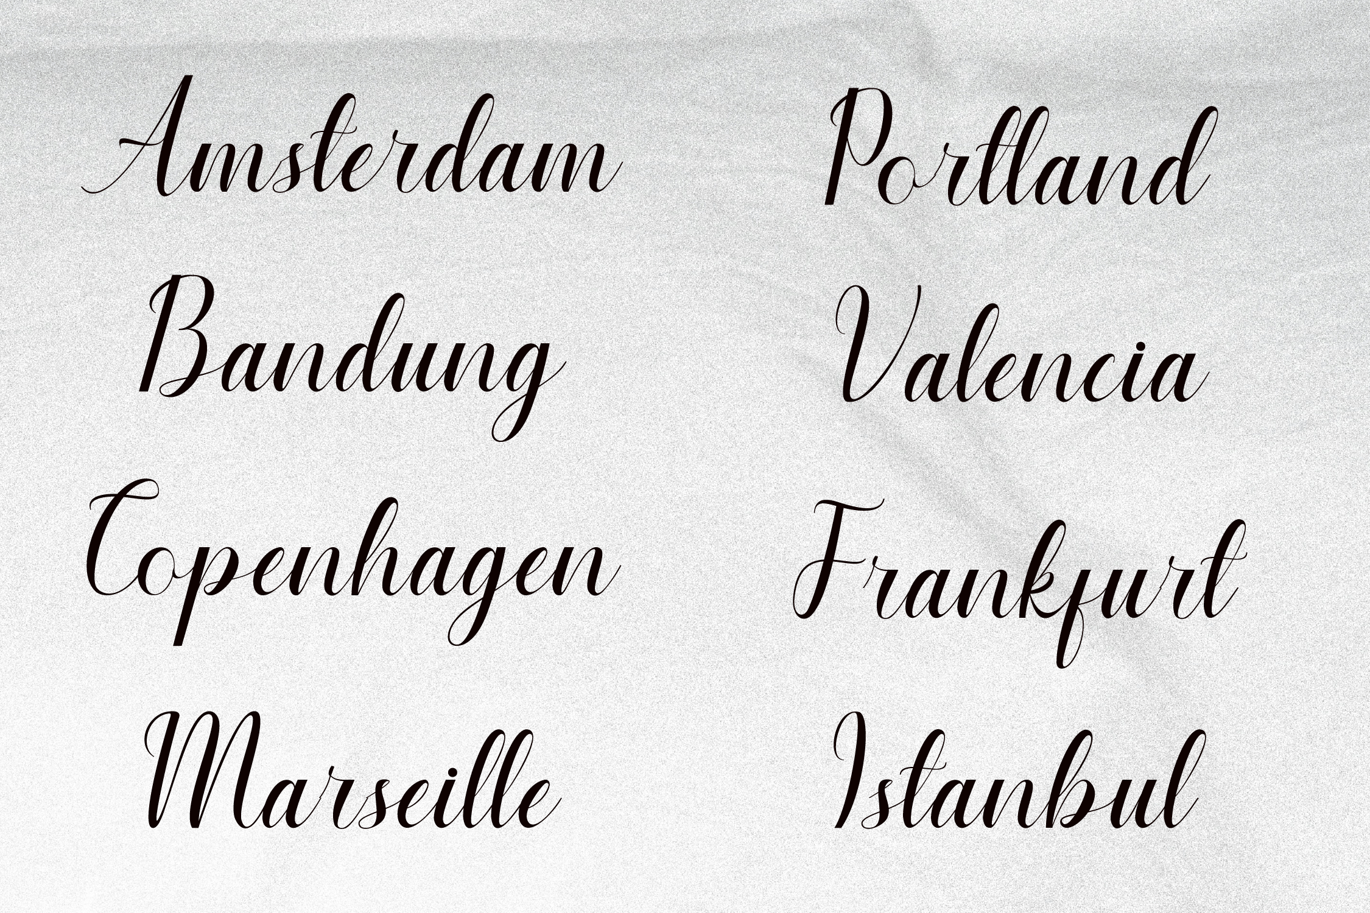 Amsterdam
Bandung
Copenhagen
Marseille
Portland
Valencia
Frankfurt
Istanbul